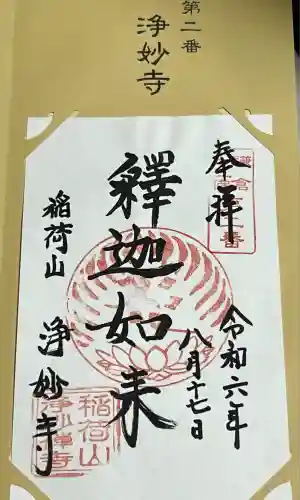 第二番
浄妙寺
奉拝
令和六年
八月十七日
釋迦如来
稲荷山
浄妙寺
稲荷山
浄妙禅寺